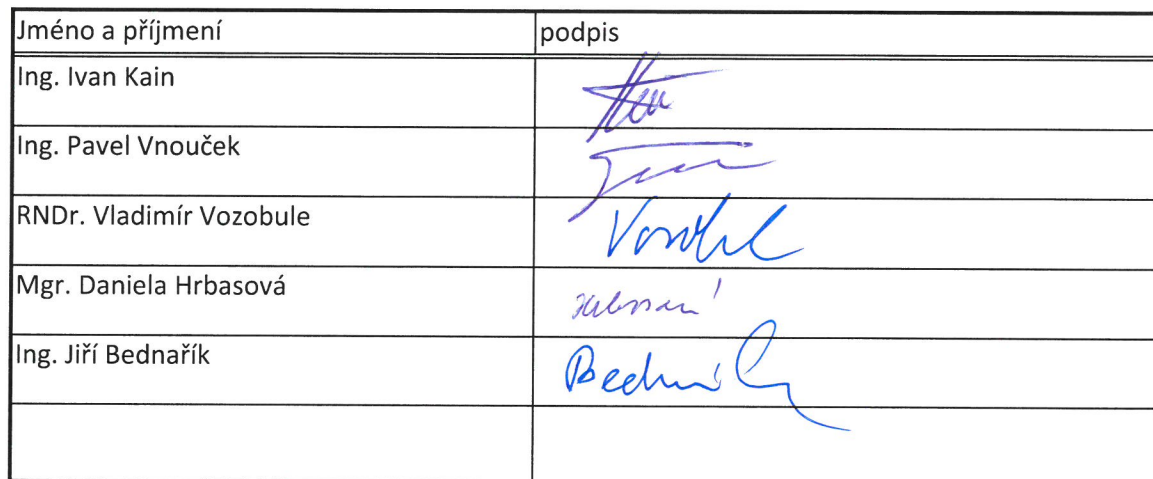 Jméno a příjmení podpis
Ing. Ivan Kain
Ing. Pavel Vnouček
RNDr. Vladimír Vozobule
Mgr. Daniela Hrbasová
Ing. Jiří Bednařík